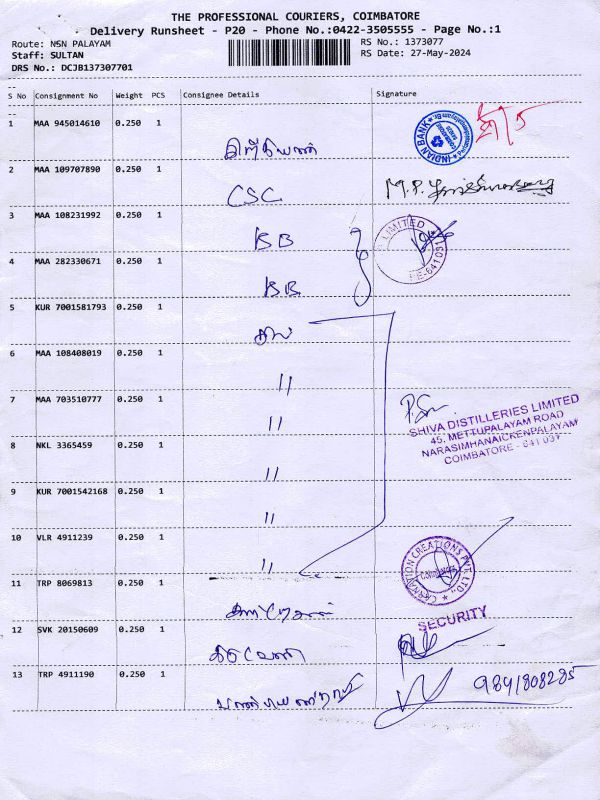 THE PROFESSIONAL COURIERS, COIMBATORE
Delivery Runsheet - P20 - Phone No.:0422-3505555 - Page No.:1
Route: NSN PALAYAM RS No.: 1373077
Staff: SULTAN RS Date: 27-May-2024
DRS No.: DCJB137307701
S No Consignment No Weight PCS Consignee Details Signature
1 MAA 945014610 0.250 1
INDIAN BANK
2 MAA 109707890 0.250 1 CSC M.P.
3 MAA 108231992 0.250 1 BB
LIMITED
4 MAA 282330671 0.250 1 BB
E-641 031
5 KUR 7001581793 0.250 1
6 MAA 108408019 0.250 1 "
7 MAA 703510777 0.250 1 "
SHIVA DISTILLERIES LIMITED
45, METTUPALAYAM ROAD
NARASIMHANAICKENPALAYAM
COIMBATORE - 641 031
8 NKL 3365459 0.250 1 "
9 KUR 7001542168 0.250 1 "
10 VLR 4911239 0.250 1 "
CARNATION CREATIONS PVT. LTD.,
11 TRP 8069813 0.250 1
SECURITY
12 SVK 20150609 0.250 1
13 TRP 4911190 0.250 1 9841808285